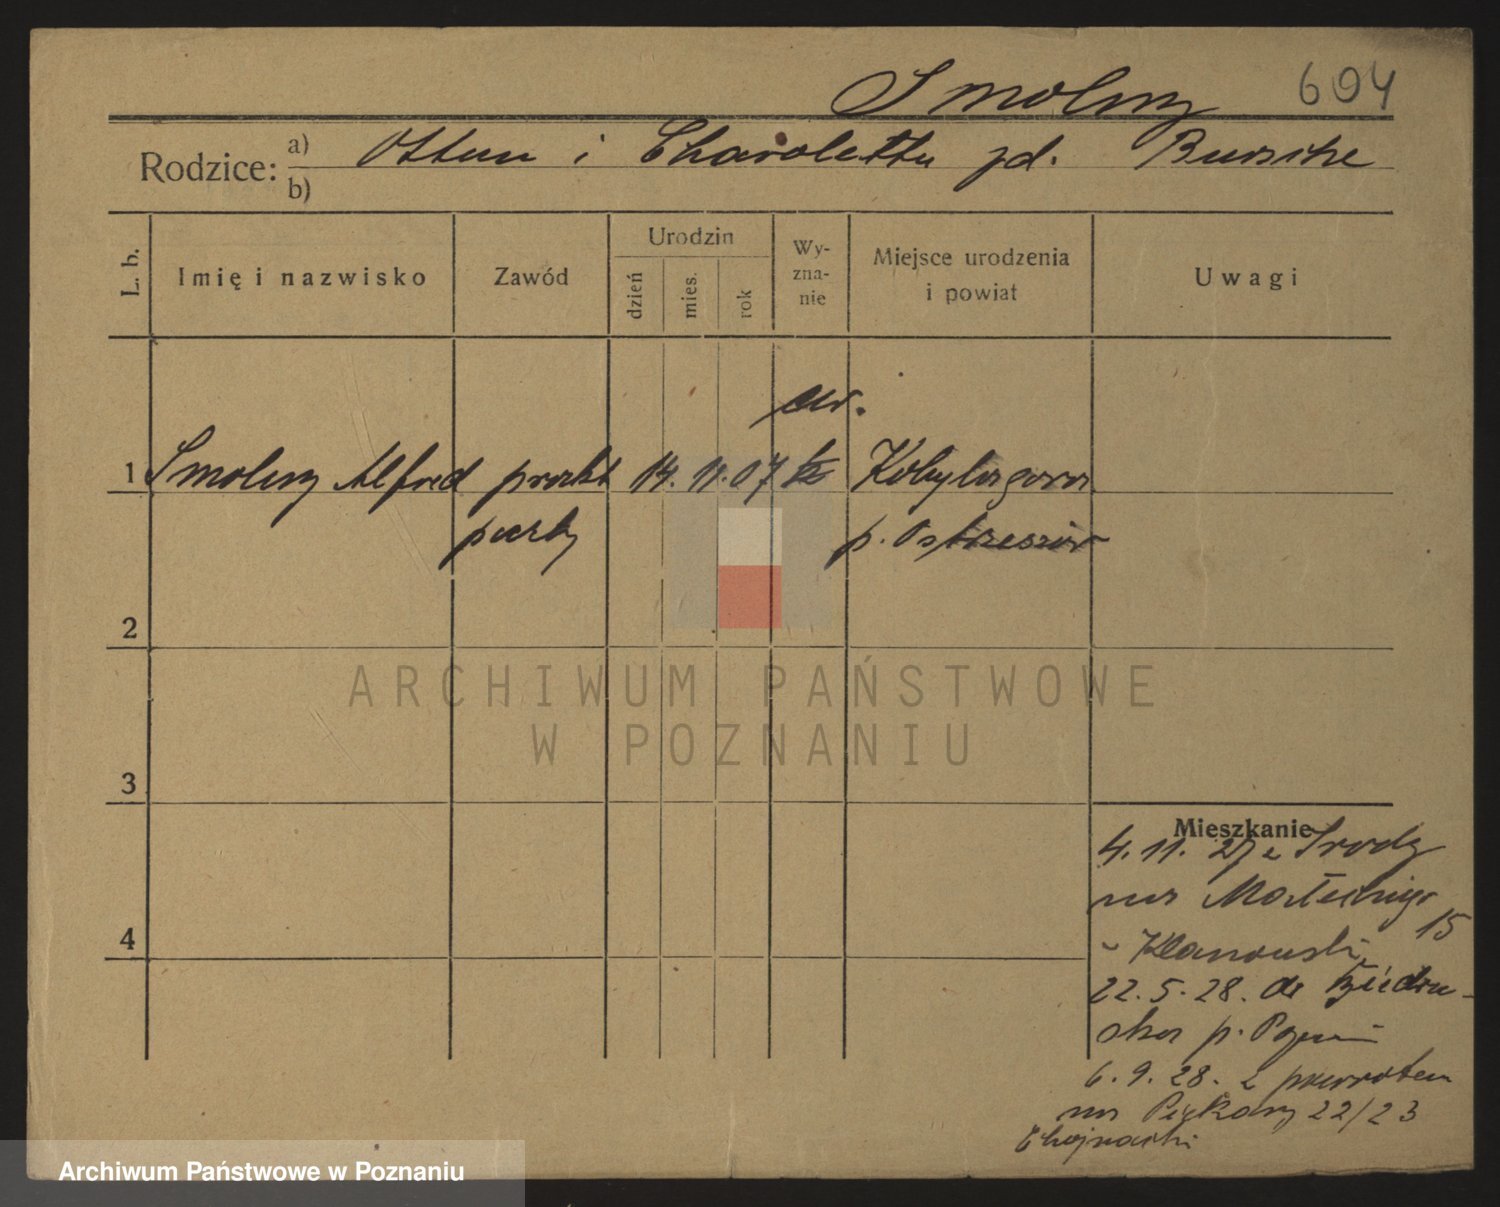 Smolny 694
Rodzice: a) Otton i Charoletta zd. Bursche
b)
L. b.
Imię i nazwisko
Zawód
Urodzin
dzień
mies.
rok
Wy-
zna-
nie
Miejsce urodzenia
i powiat
Uwagi
ew.
1 Smolny Alfred prakt 14. 11. 07 Kobylagora
p. Ostrzeszów
2
ARCHIWUM PAŃSTWOWE
W POZNANIU
3
Mieszkanie
4. 11. 27 z Środy
na
15
22. 5. 28. do Biedru-
ska p. Pozn
6. 9. 28. z powrotem
na Piekary 22/23
Chojnacki
4
Archiwum Państwowe w Poznaniu